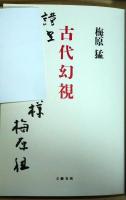 梅原 猛
古代幻視
謹呈
様
梅原猛
文藝春秋